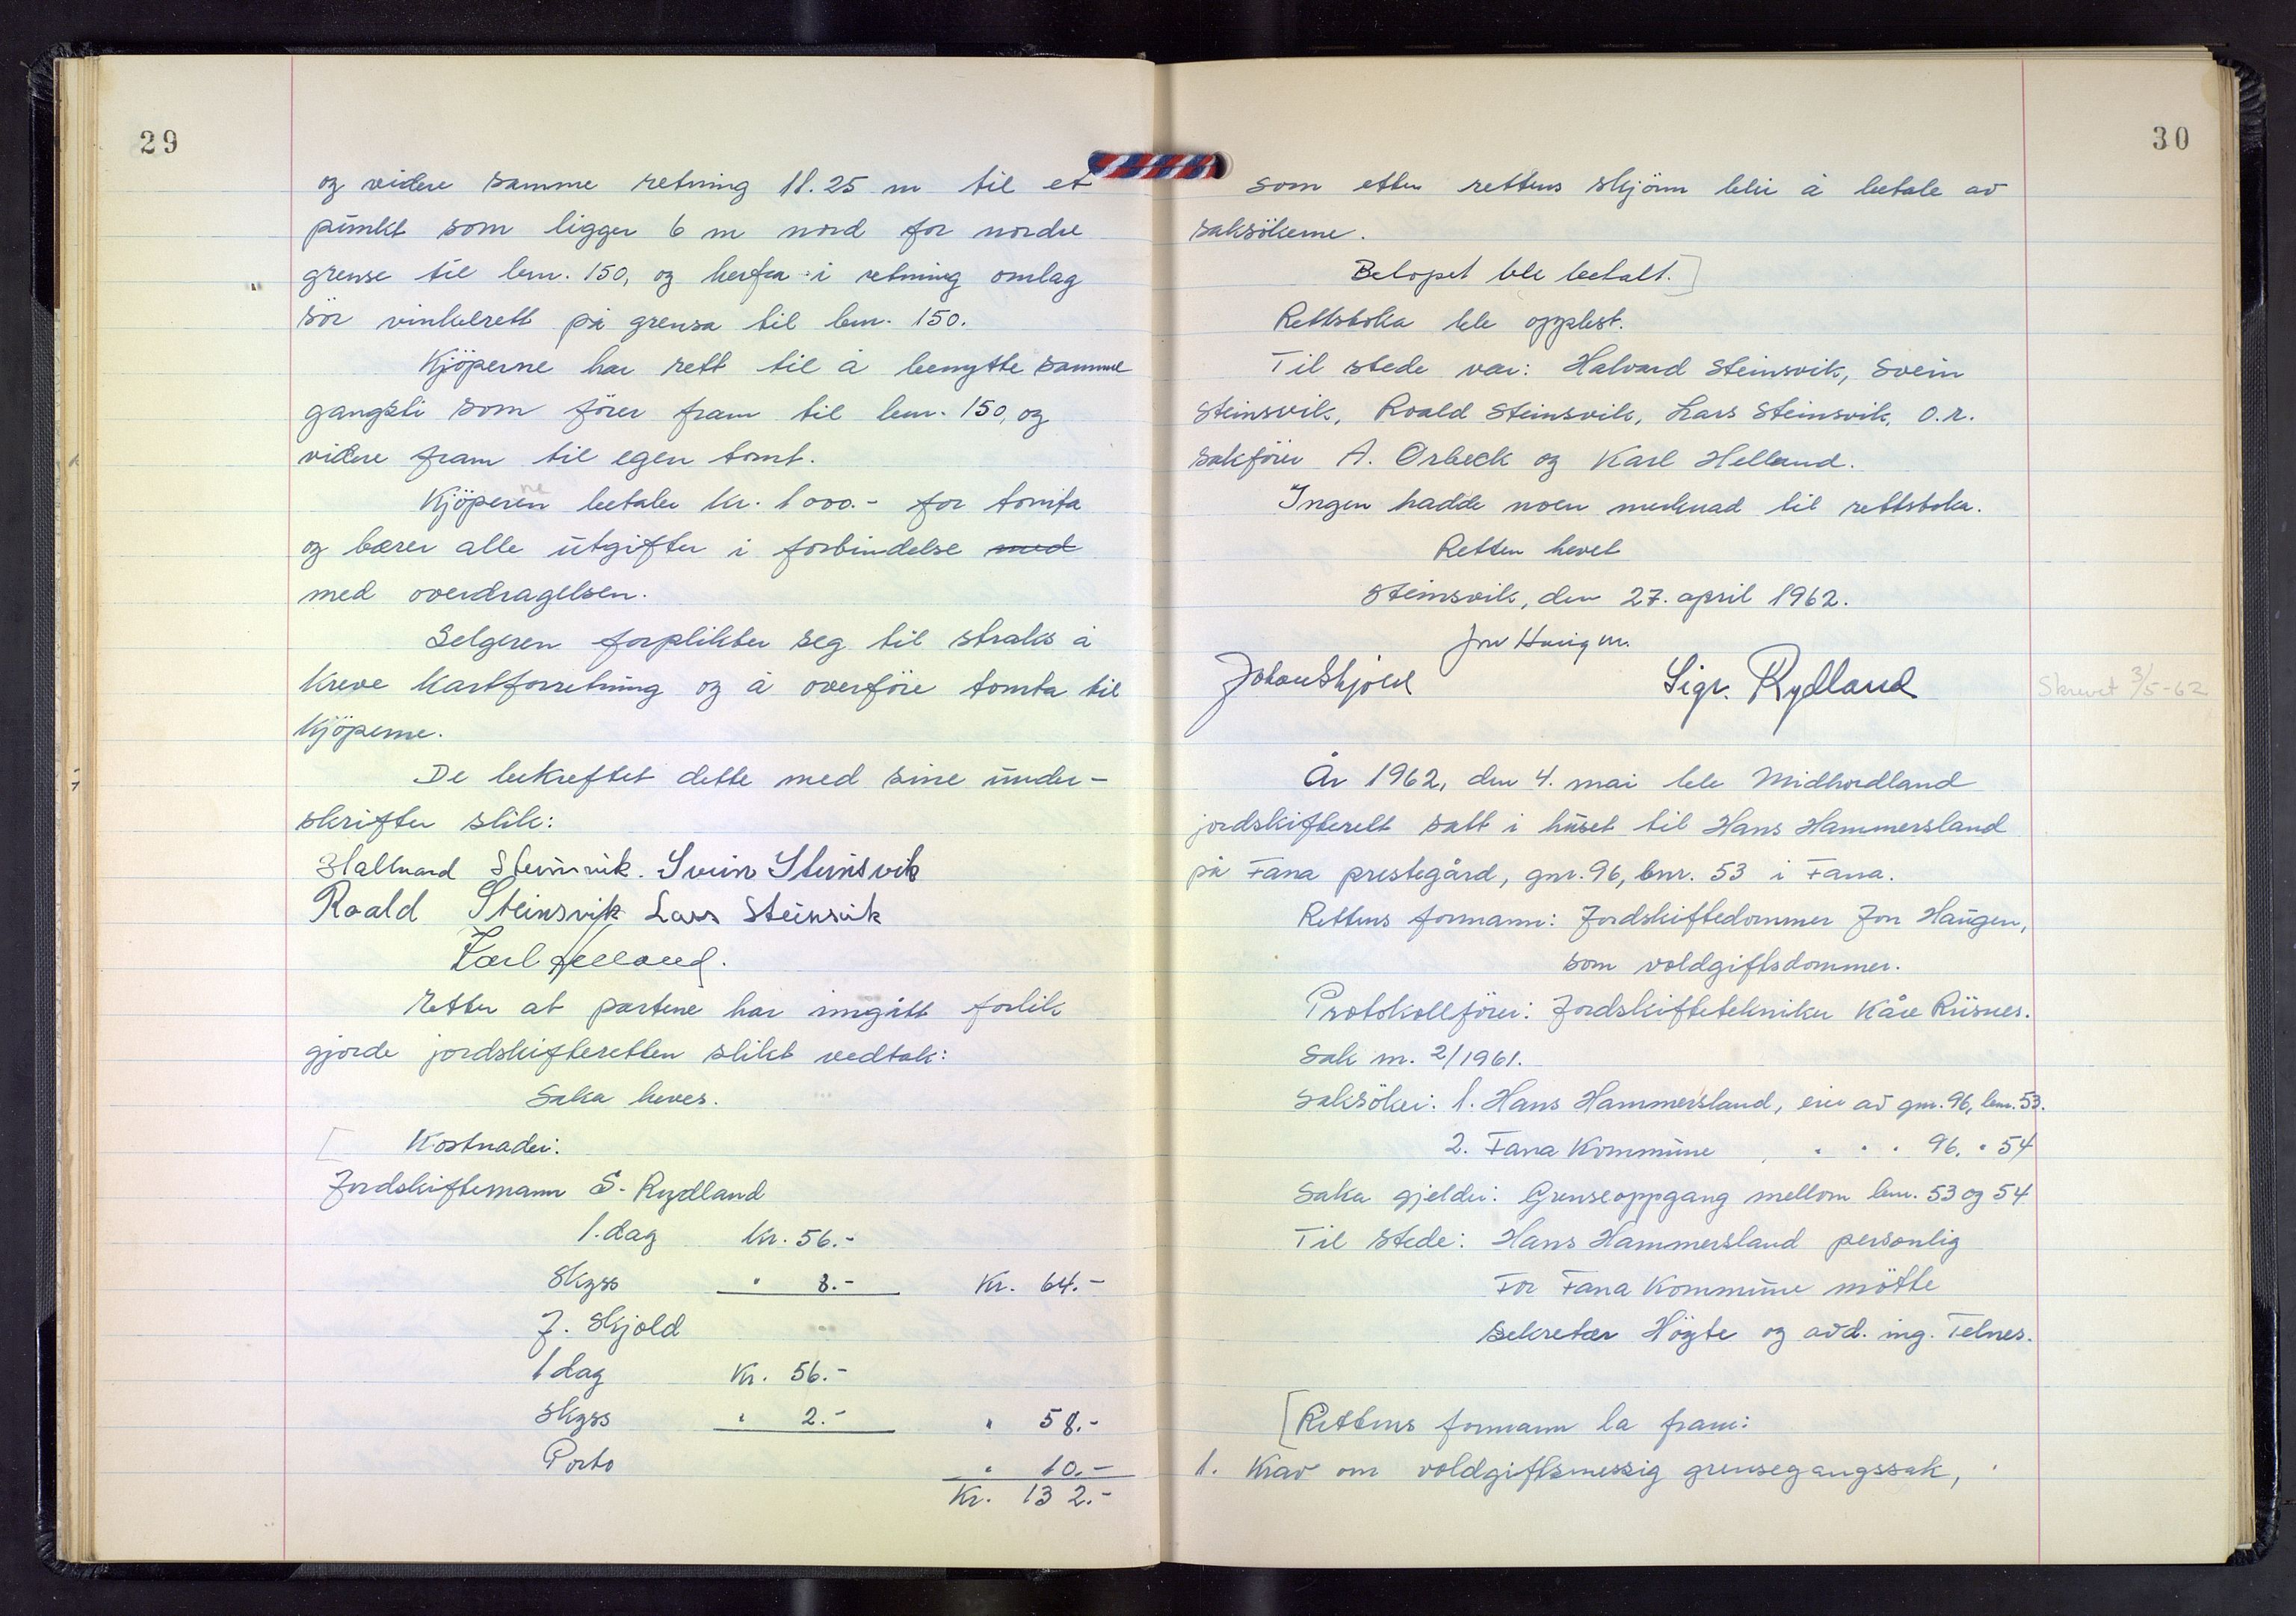 29
og videre samme retning 18.25 m til et
punkt som ligger 6 m nord for nordre
grense til bnr. 150, og herfra i retning omlag
sör vinkelrett på grensa til bnr. 150.
Kjöperne har rett til å benytte samme
gangsti som förer fram til bnr. 150, og
videre fram til egen tomt.
Kjöperen ne betaler kr. 1000.- for tomta
og bærer alle utgifter i forbindelse med
med overdragelsen.
Selgeren forplikter seg til straks å
kreve kartforretning og å overföre tomta til
kjöperne.
De bekreftet dette med sine under-
skrifter slik:
Hallvard Steinsvik. Svein Steinsvik
Roald Steinsvik Lars Steinsvik
Karl Helland.
Etter at partene har inngått forlik
gjorde jordskifteretten slikt vedtak:
Saka heves.
[ Kostnader:
Jordskiftemann S. Rydland
1. dag kr. 56.-
Skyss " 8.- Kr. 64.-
J. Skjold
1 dag Kr. 56.-
Skyss " 2.- " 58.-
Porto " 10.-
Kr. 132.-
30
som etter rettens skjönn blir å betale av
saksökerne.
Belopet ble betalt.]
Rettsboka ble opplest.
Til stede var: Halvard Steinsvik, Svein
Steinsvik, Roald Steinsvik, Lars Steinsvik, o.r.
sakförer A. Orbeck og Karl Helland.
Ingen hadde noen merknad til rettsboka.
Retten hevet
Steinsvik, den 27. april 1962.
Jon Haugen.
Johan Skjold Sigr. Rydland
Skrevet 3/5-62
År 1962, den 4. mai ble Midhordland
jordskifterett satt i huset til Hans Hammersland
på Fana prestegård, gnr. 96, bnr. 53 i Fana.
Rettens formann: Jordskiftedommer Jon Haugen,
som voldgiftsdommer.
Protokollförer: Jordskiftetekniker Kåre Riisnes.
Sak nr. 2/1961.
Saksöker: 1. Hans Hammersland, eier av gnr. 96, bnr. 53.
2. Fana Kommune , " " " 96, " 54
Saka gjelder: Grenseoppgang mellom bnr. 53 og 54
Til stede: Hans Hammersland personlig
For Fana Kommune mötte
sekretær Högte og avd. ing. Telnes.
[Rettens formann la fram:
1. Krav om voldgiftsmessig grensegangssak,